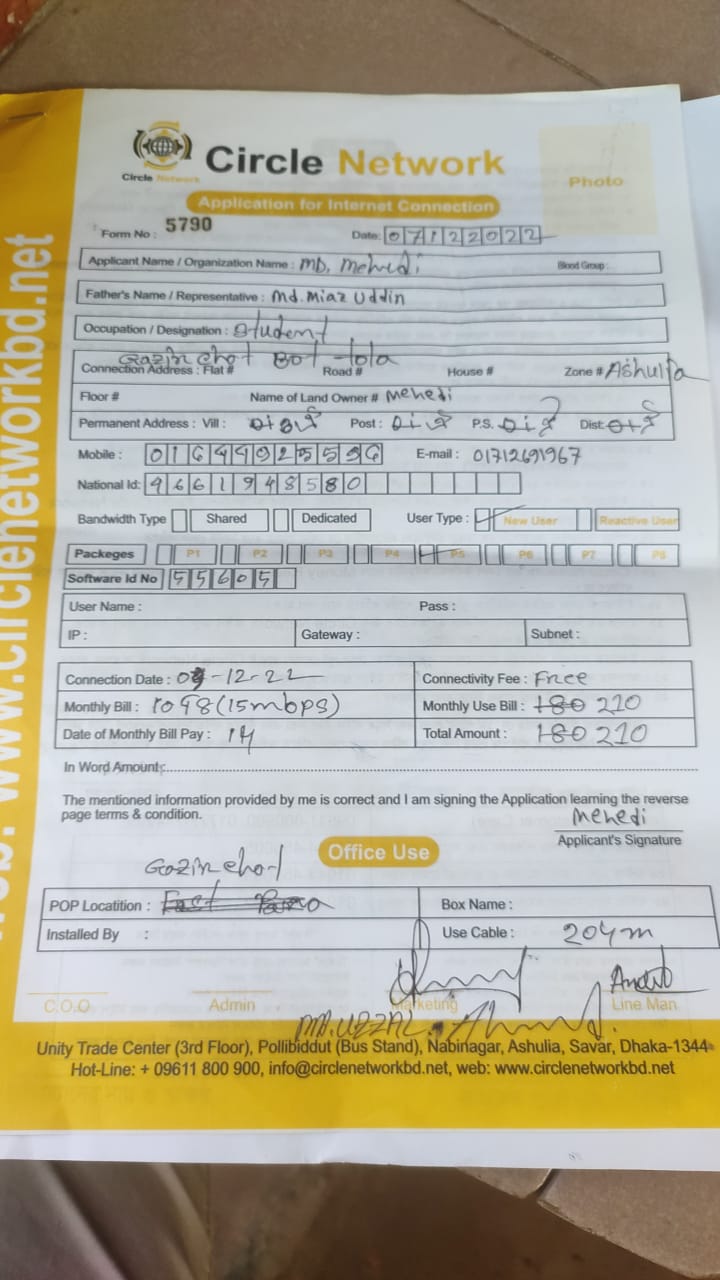 Circle Network
Circle Network
Photo
Application for Internet Connection
Form No : 5790 Date: 07122022
Applicant Name / Organization Name : MD. Mehedi Blood Group :
Father's Name / Representative : Md. Miaz Uddin
Occupation / Designation : Student
Gazir chot Bot-tola
Connection Address : Flat # Road # House # Zone # Ashulia
Floor # Name of Land Owner # Mehedi
Permanent Address : Vill : Post : P.S. Dist:
Mobile : E-mail : 01712691967
National Id: 9661948580
Bandwidth Type Shared Dedicated User Type : New User Reactive User
Packeges P1 P2 P3 P4 P5 P6 P7 P8
Software Id No 55605
User Name : Pass :
IP : Gateway : Subnet :
Connection Date : -12-22 Connectivity Fee : Free
Monthly Bill : 1098 (15mbps) Monthly Use Bill : 180 210
Date of Monthly Bill Pay : 14 Total Amount : 180 210
In Word Amount :
The mentioned information provided by me is correct and I am signing the Application learning the reverse
page terms & condition.
Mehedi
Applicant's Signature
Office Use
Gazir chot
POP Locatition : Box Name :
Installed By : Use Cable : 204m
C.O.O Admin Marketing Line Man
Unity Trade Center (3rd Floor), Pollibiddut (Bus Stand), Nabinagar, Ashulia, Savar, Dhaka-1344
Hot-Line: + 09611 800 900, info@circlenetworkbd.net, web: www.circlenetworkbd.net
www.circlenetworkbd.net